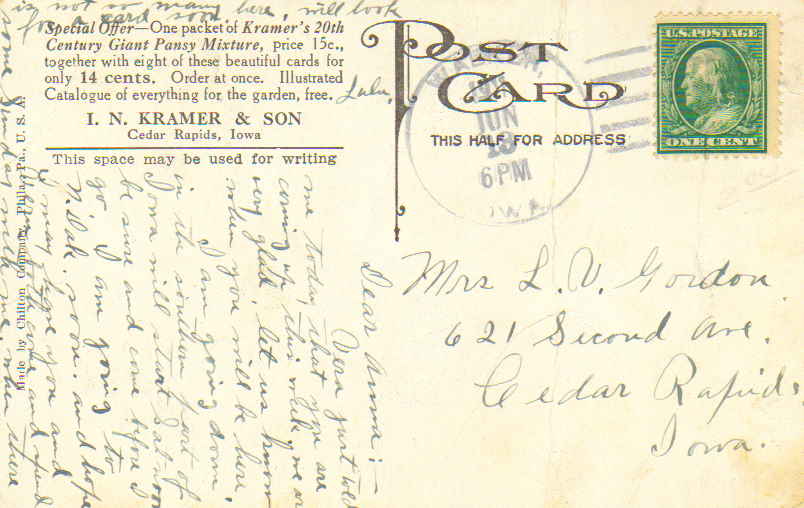 is not so many here, will look
for a card soon
Lulu,
Special Offer—One packet of Kramer's 20th
Century Giant Pansy Mixture, price 15c.,
together with eight of these beautiful cards for
only 14 cents. Order at once. Illustrated
Catalogue of everything for the garden, free.
I. N. KRAMER & SON
Cedar Rapids, Iowa
This space may be used for writing
POST CARD
THIS HALF FOR ADDRESS
JUN
6 PM
IOWA
U.S. POSTAGE
ONE CENT
Made by Chilton Company, Phila., Pa., U. S. A.
Dear Anna:—
Vera just told
me today that you are
coming up this week, we are
very glad, let us know
when you will be here,
I am going down
in the southern part of
Iowa will start Sat-
be sure and come before I
go I am going to
N. Dak. soon, and hope
I may see you and
come and spend
some Sunday with me, when there
Mrs L. V. Gordon
621 Second Ave.
Cedar Rapids,
Iowa.